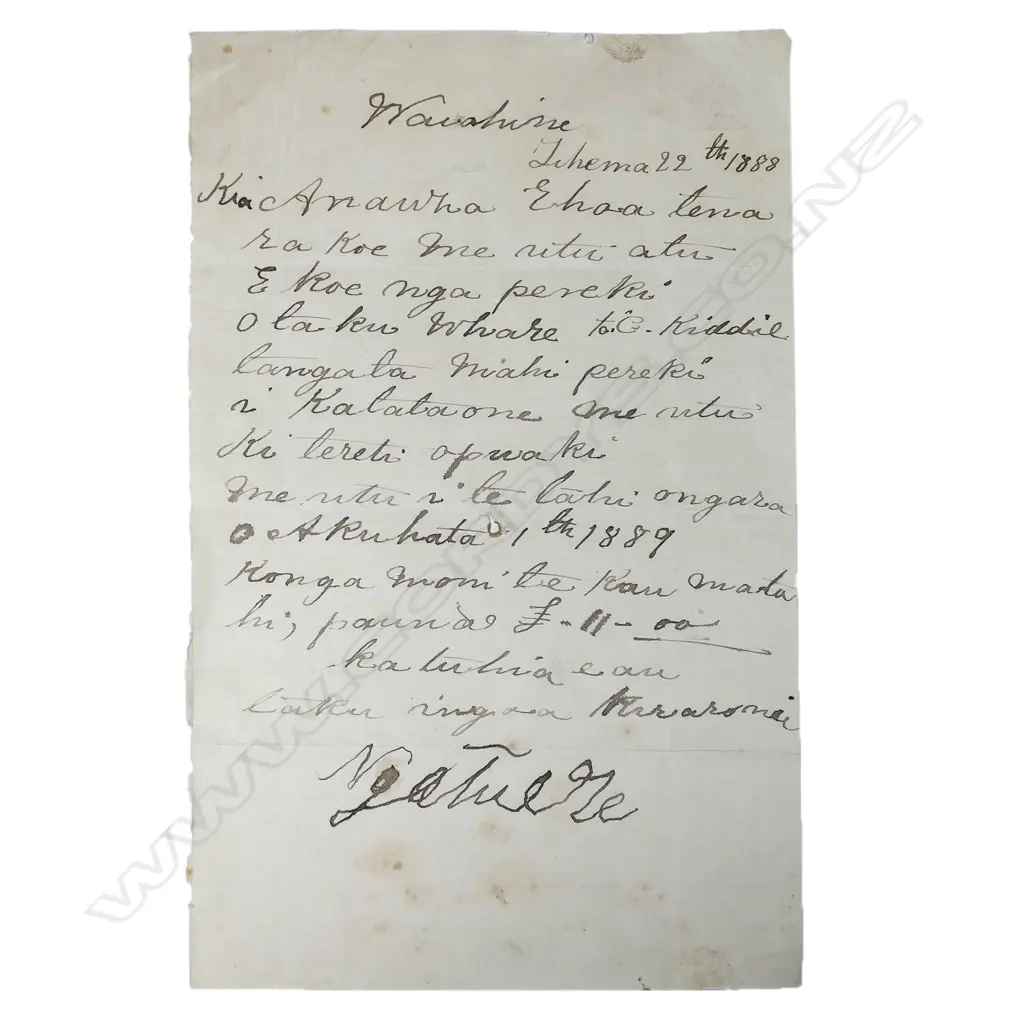 Waiohine
Tihema 22th 1888
Kia Anawha Ehoa tena
ra koe me utu atu
E koe nga pereki
o taku Whare to C. Kiddil
tangata Mahi pereki
i Katataone me utu
Ki tereti opuaki
me utu i te tahi ongara
o Akuhata 1th 1889
Konga moni te Kau mata
hi, pauna £-11-00
ka tuhia e au
taku ingoa
Ngatuere
WWW.CORDYS.CO.NZ